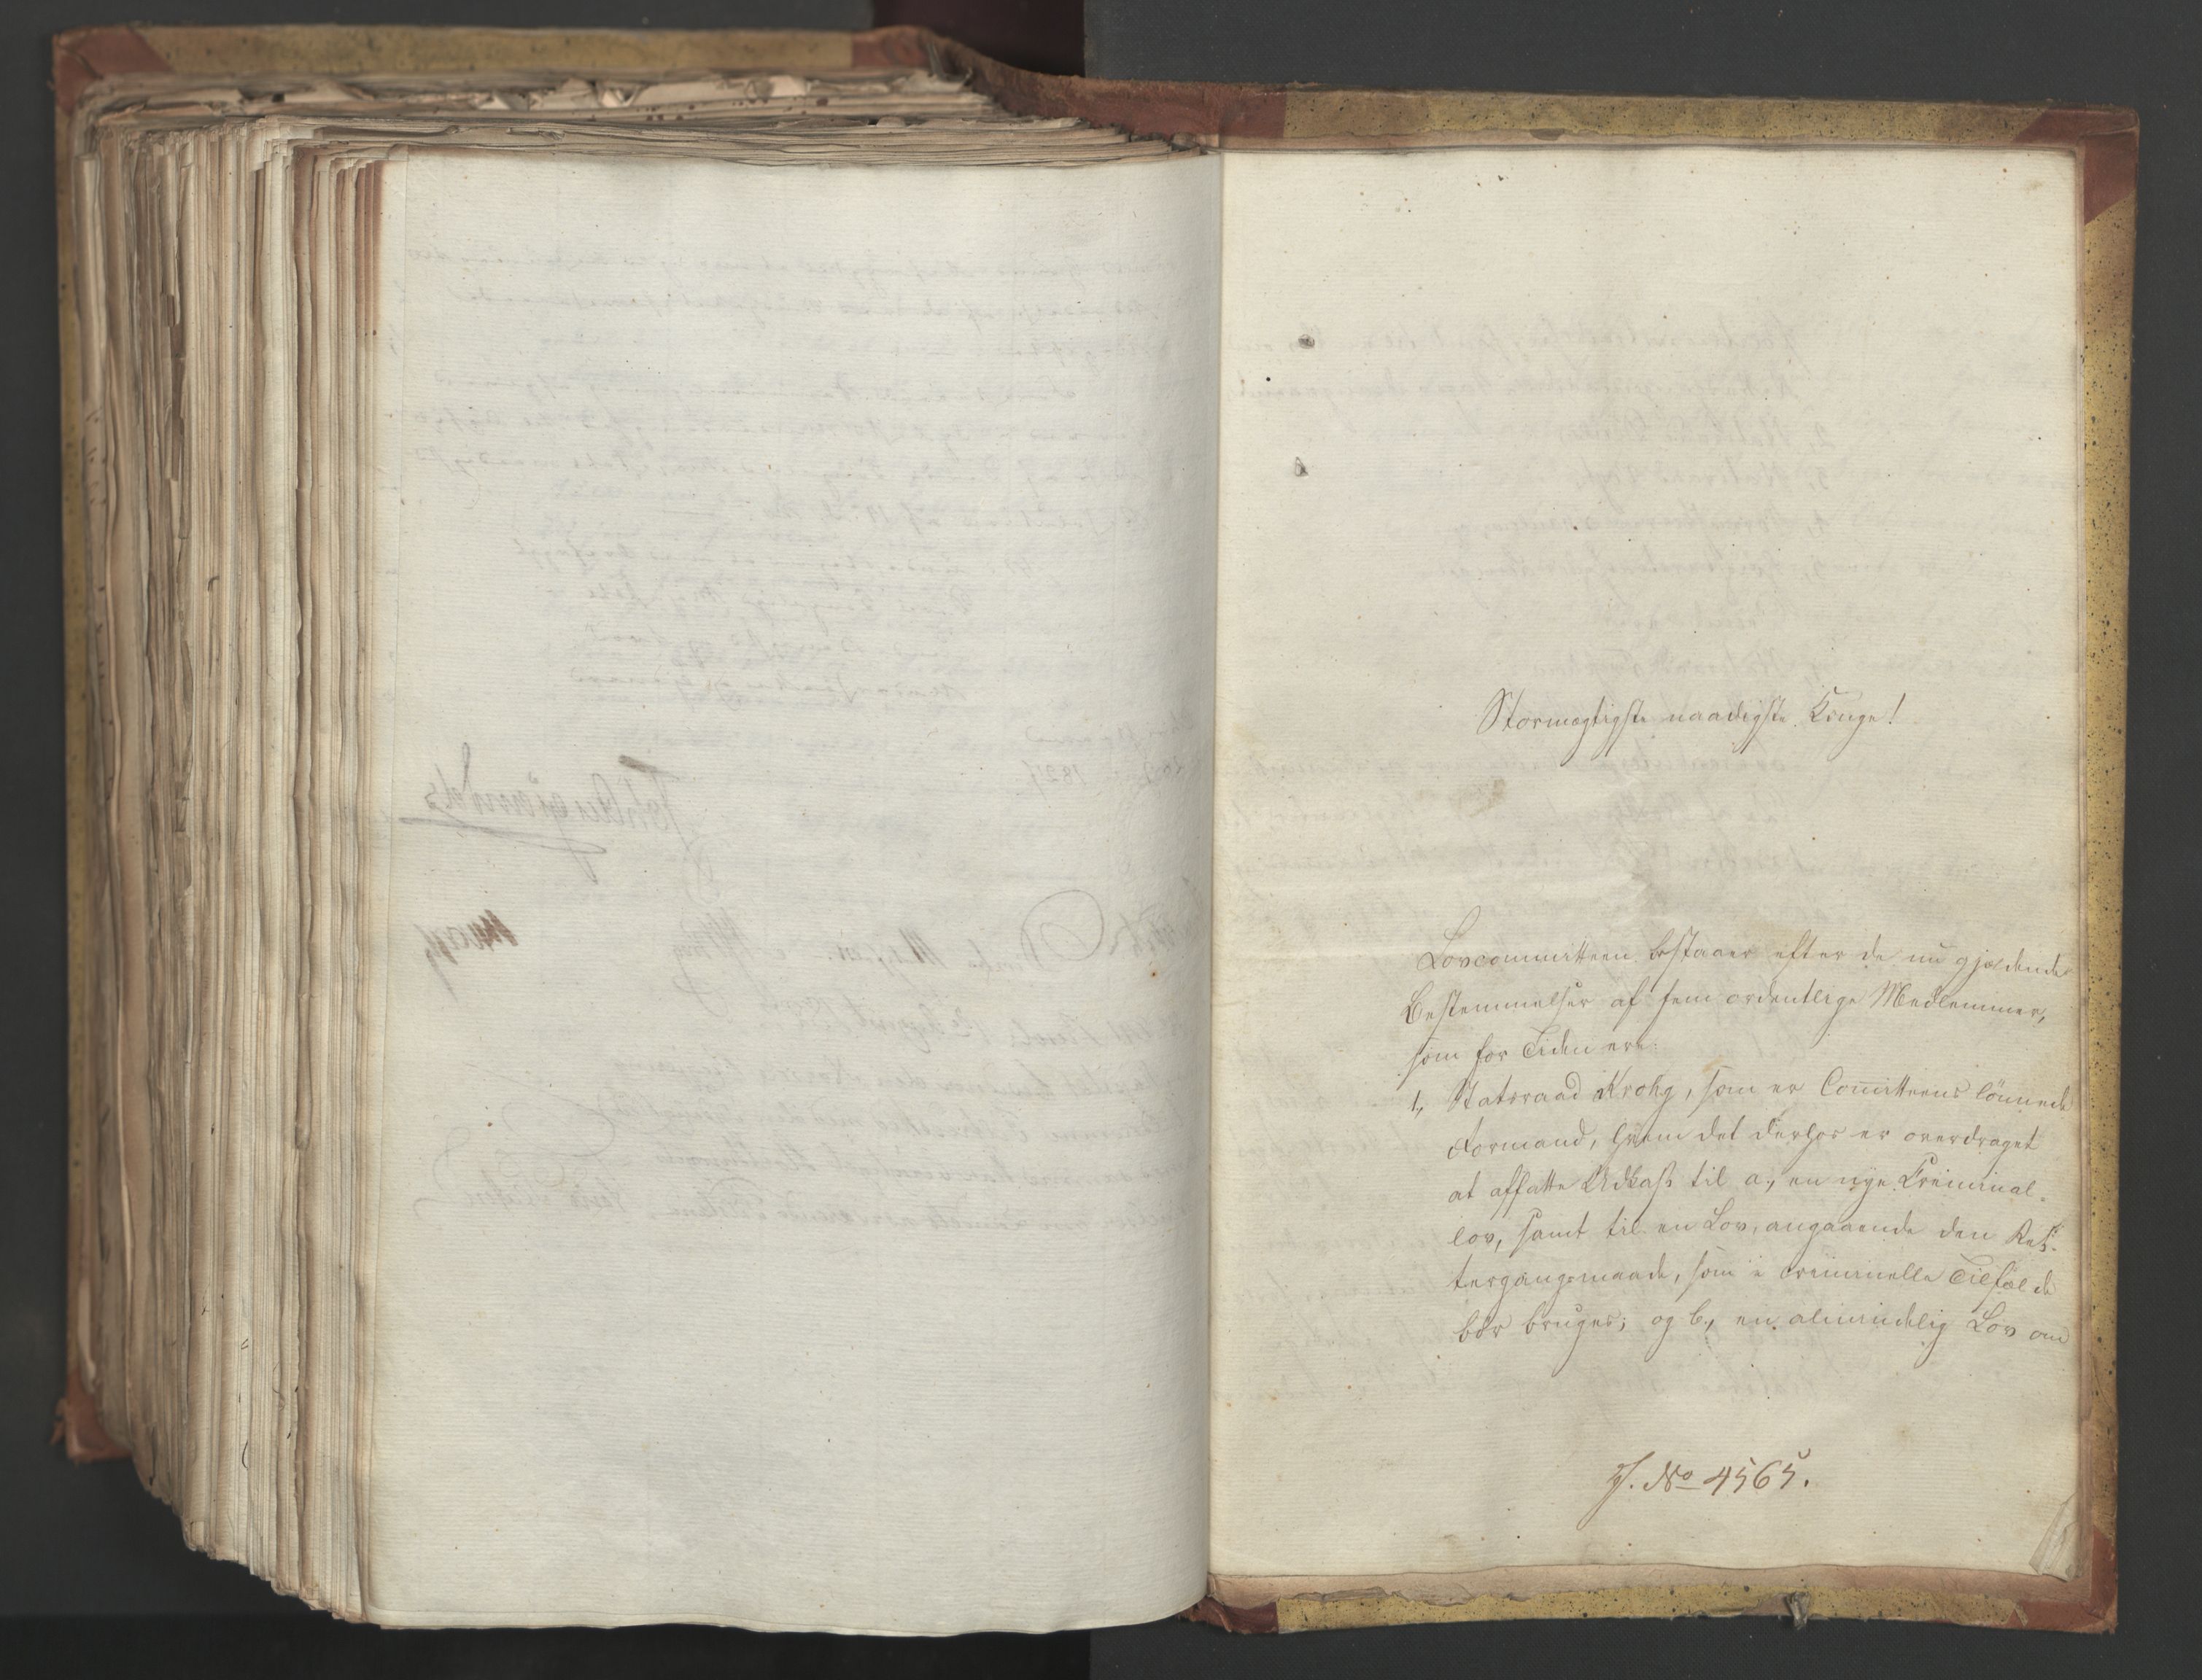 Stormægtigste naadigste Konge!
Lovcommitteen bestaaer efter de nu gjældende
Bestemmelser af fem ordentlige Medlemmer,
som for Tiden ere:
1, Statsraad Krohg, som er Comitteens lönnede
Formand, hvem det derhos er overdraget
at affatte Udkast til a, en nye Criminal-
lov, samt til en Lov, angaaende den Ret-
tergangsmaade, som i criminelle Tilfælde
bör bruges; og b, en almindelig Lov om
J. No 4565.